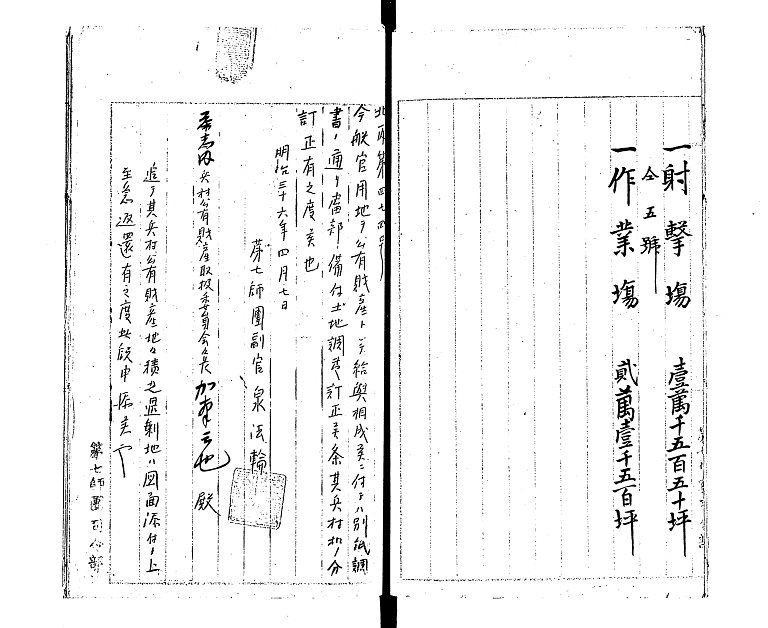 一射擊塲 壹萬千五百五十坪
仝五號
一作業塲 貳萬壹千五百坪
第四七四号
今般官用地ヲ公有財産トシテ給與相成候ニ付テハ別紙調
書ノ通リ當部備付土地調書訂正候条其兵村扣ノ分
訂正有之度候也
明治三十六年四月七日
第七師團副官 泉法輪
兵村公有財産取扱委員会々長 殿
追テ其兵村公有財産地々積ノ過剰地ハ図面添付ノ上
至急返還有之度此段申添候也
第七師團司令部